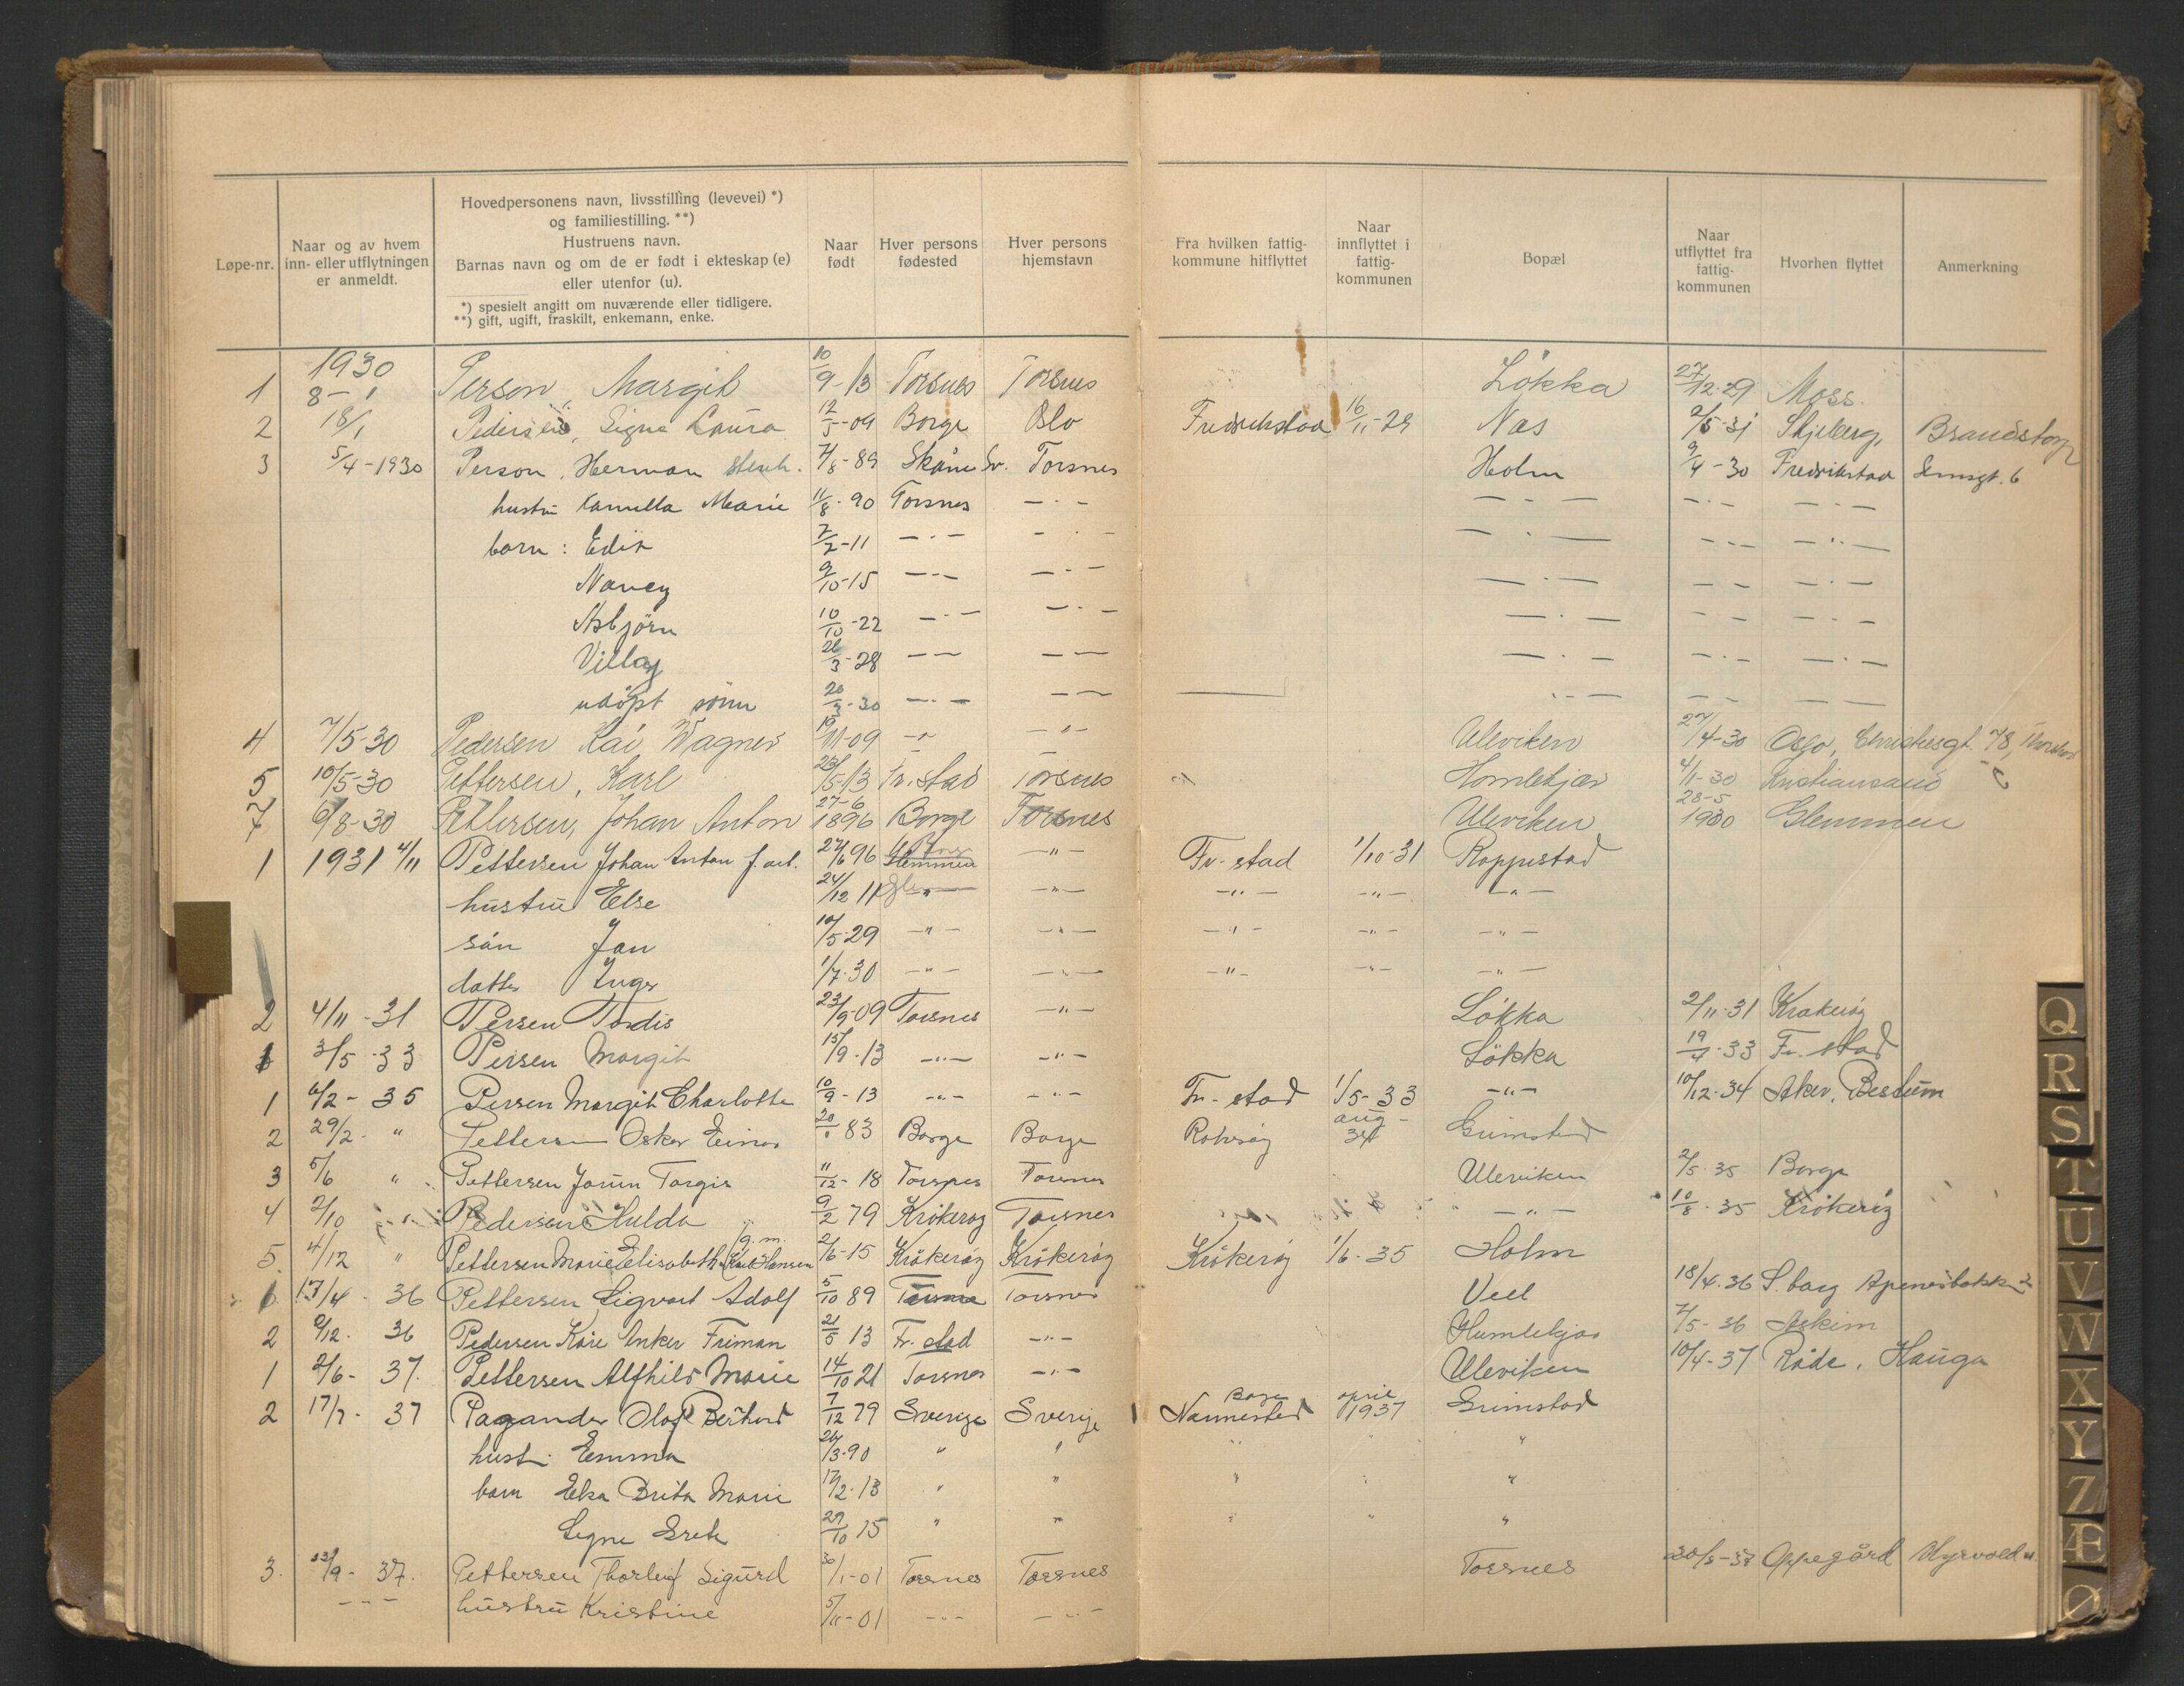 Løpe-nr.
Naar og av hvem
inn- eller utflytningen
er anmeldt.
Hovedpersonens navn, livsstilling (levevei) *)
og familiestilling. **)
Hustruens navn.
Barnas navn og om de er født i ekteskap (e)
eller utenfor (u).
*) spesielt angitt om nuværende eller tidligere.
**) gift, ugift, fraskilt, enkemann, enke.
Naar
født
Hver persons
fødested
Hver persons
hjemstavn
Fra hvilken fattig-
kommune hitflyttet
Naar
innflyttet i
fattig-
kommunen
Bopæl
Naar
utflyttet fra
fattig-
kommunen
Hvorhen flyttet
Anmerkning
1930
1 8-1 Person, Margit 10/9-13 Torsnes Torsnes Lökka 27/12-29 Moss.
2 18/1 Pedersen, Signe Laura 12/5-09 Borge Oslo Fredrikstad 16/11-29 Nes 2/5-31 Skjeberg, Brandstorp
3 5/4-1930 Person, Herman stenh. 7/8-89 Skåne Sv. Torsnes Holm 9/4-30 Fredrikstad Lensgt. 6
hustru Kamilla Marie 11/8-90 Torsnes -"- -"- -"- -"-
barn: Edit 7/2-11 -"- -"- -"- -"- -"-
Nancy 9/10-15 -"- -"- -"- -"- -"-
Asbjörn 10/10-22 -"- -"- -"- -"- -"-
Villy 26/3-28 -"- -"- -"- -"- -"-
udöpt sönn 20/3-30 -"- -"- -"- -"- -"-
4 7/5-30 Pedersen Kai Wagner 19/11-09 -"- -"- Uleviken 27/4-30 Oslo, Christiesgt. 78,
5 10/5-30 Pettersen, Karl 23/5-13 Fr.stad Torsnes Homlekjær 4/1-30 Kristiansand
7 6/8-30 Pettersen, Johan Anton 27-6 1896 Borge Torsnes Uleviken 28-5 1930 Glemmen
1 1931 4/11 Pettersen Johan Anton f.arb. 27/6 96 Borge Glemmen -"- Fr-stad 1/10-31 Roppestad
hustru Else 24/12 11 Glem -"- -"- -"- -"-
sön Jan 10/5-29 -"- -"- -"- -"- -"-
datter Inger 1/7-30 -"- -"- -"- -"- -"-
2 4/11-31 Persen Tordis 23/9-09 Torsnes -"- Lökka 2/11-31 Kråkeröy
1 3/5-33 Persen Margit 15/9-13 -"- -"- Lökka 19/4-33 Fr. stad
1 6/2-35 Persen Margit Charlotte 10/9-13 -"- -"- Fr-stad 1/5-33 -"- 10/12-34 Aker, Bestum
2 29/2 " Pettersen Oskar Einar 83 Borge Borge aug- 34 Grimstad
3 5/6 " Pettersen Jorun Torgis 11/12-18 Torsnes Torsnes Uleviken 2/5-35 Borge
4 2/10 " Pedersen Hulda 9/2 79 Kråkeröy Torsnes -"- 10/8-35 Kråkeröy
5. 4/12 " Pettersen Marie Elisabeth (g.m. Karl Hansen 2/6-15 Kråkeröy Kråkeröy Kråkeröy 1/6-35 Holm
1 17/4-36 Pettersen Sigvart Adolf 5/10 89 Torsnes Torsnes Veel 18/4-36 S.borg Apenesbakken 2
2 9/12-36 Pedersen Kåre Anker Friman 21/5 13 Fr. stad -"- Humlekjær 7/5-36 Askim
1 2/6-37. Pettersen Alfhild Marie 14/10 21 Torsnes -"- Uleviken 10/4-37 Råde, Hauga
2 17/7-37 Pagander Olof Berhard 7/12 79 Sverige Sverige Borge Nannestad april 1937 Grimstad
hust. Emma 26/3-90 " " " " "
barn Elsa Brita Marie 17/2-13 " " " " "
Signe Greta 29/10 15 " " " " "
3. 23/9-37. Pettersen Thorleif Sigurd 30/1-01 Torsnes Torsnes Torsnes 20/8-37 Oppegård Myrvold st.
--- hustru Kristine 5/11-01 -"- -"-
Q
R
S
T
U
V
W
X
Y
Z
Æ
Ø